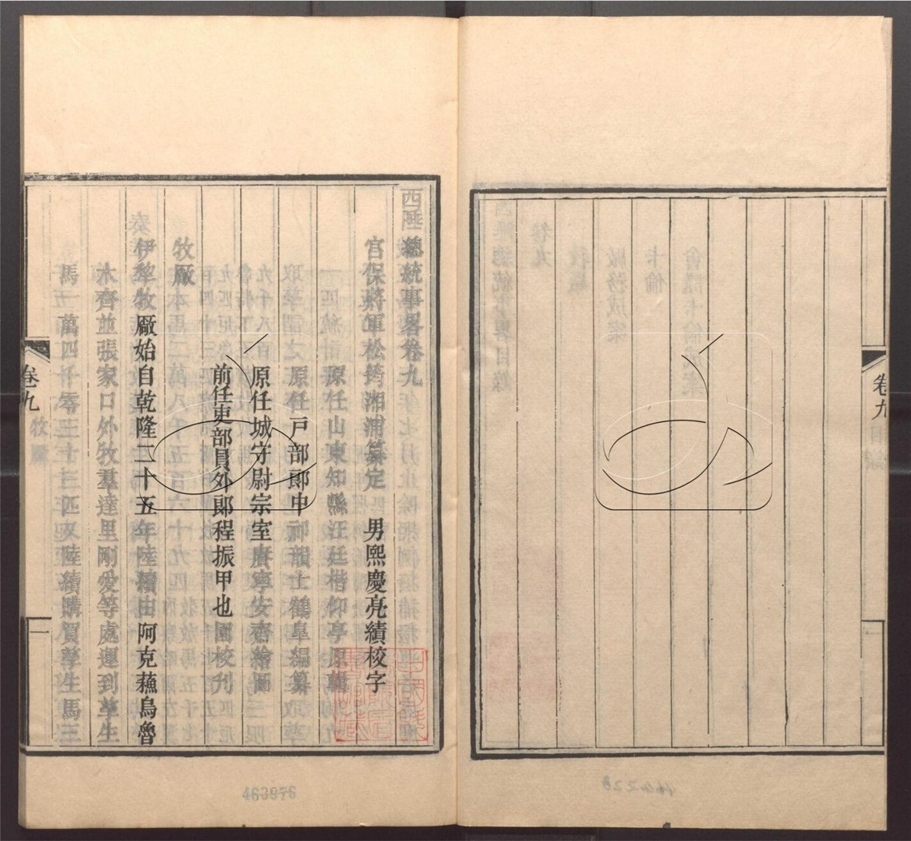 西陲總統事畧卷九
宮保將軍松筠湘浦纂定 男熙慶亮績校字
原任山東知縣汪廷楷仰亭原輯
原任戸部郎中祁韻士鶴皋編纂
原任城守尉宗室廣寧安齋繪圖
前任吏部員外郎程振甲也園校刋
牧廠
伊犂牧廠始自乾隆二十五年陸續由阿克蘇烏魯
木齊並張家口外牧羣達里剛愛等處運到孳生
馬一萬四仟零三十三匹又陸續購買孳生馬三
卷九
牧廠
一
卷九
目錄
463976